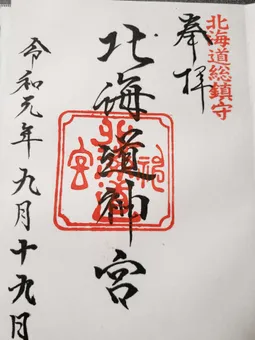 北海道総鎮守
奉拝
北海道神宮
令和元年九月十九日